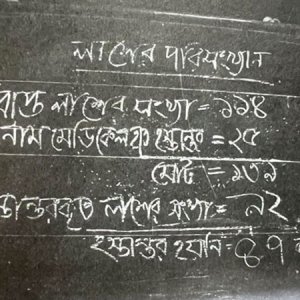 লাশের পরিসংখ্যান
প্রাপ্ত লাশের সংখ্যা = ১১৪
নাম মেডিকেল হস্তান্তর = ২৫
মোট = ১৩৯
স্তান্তরকৃত লাশের সংখ্যা = ৯২
হস্তান্তর হয়নি = ৪৭